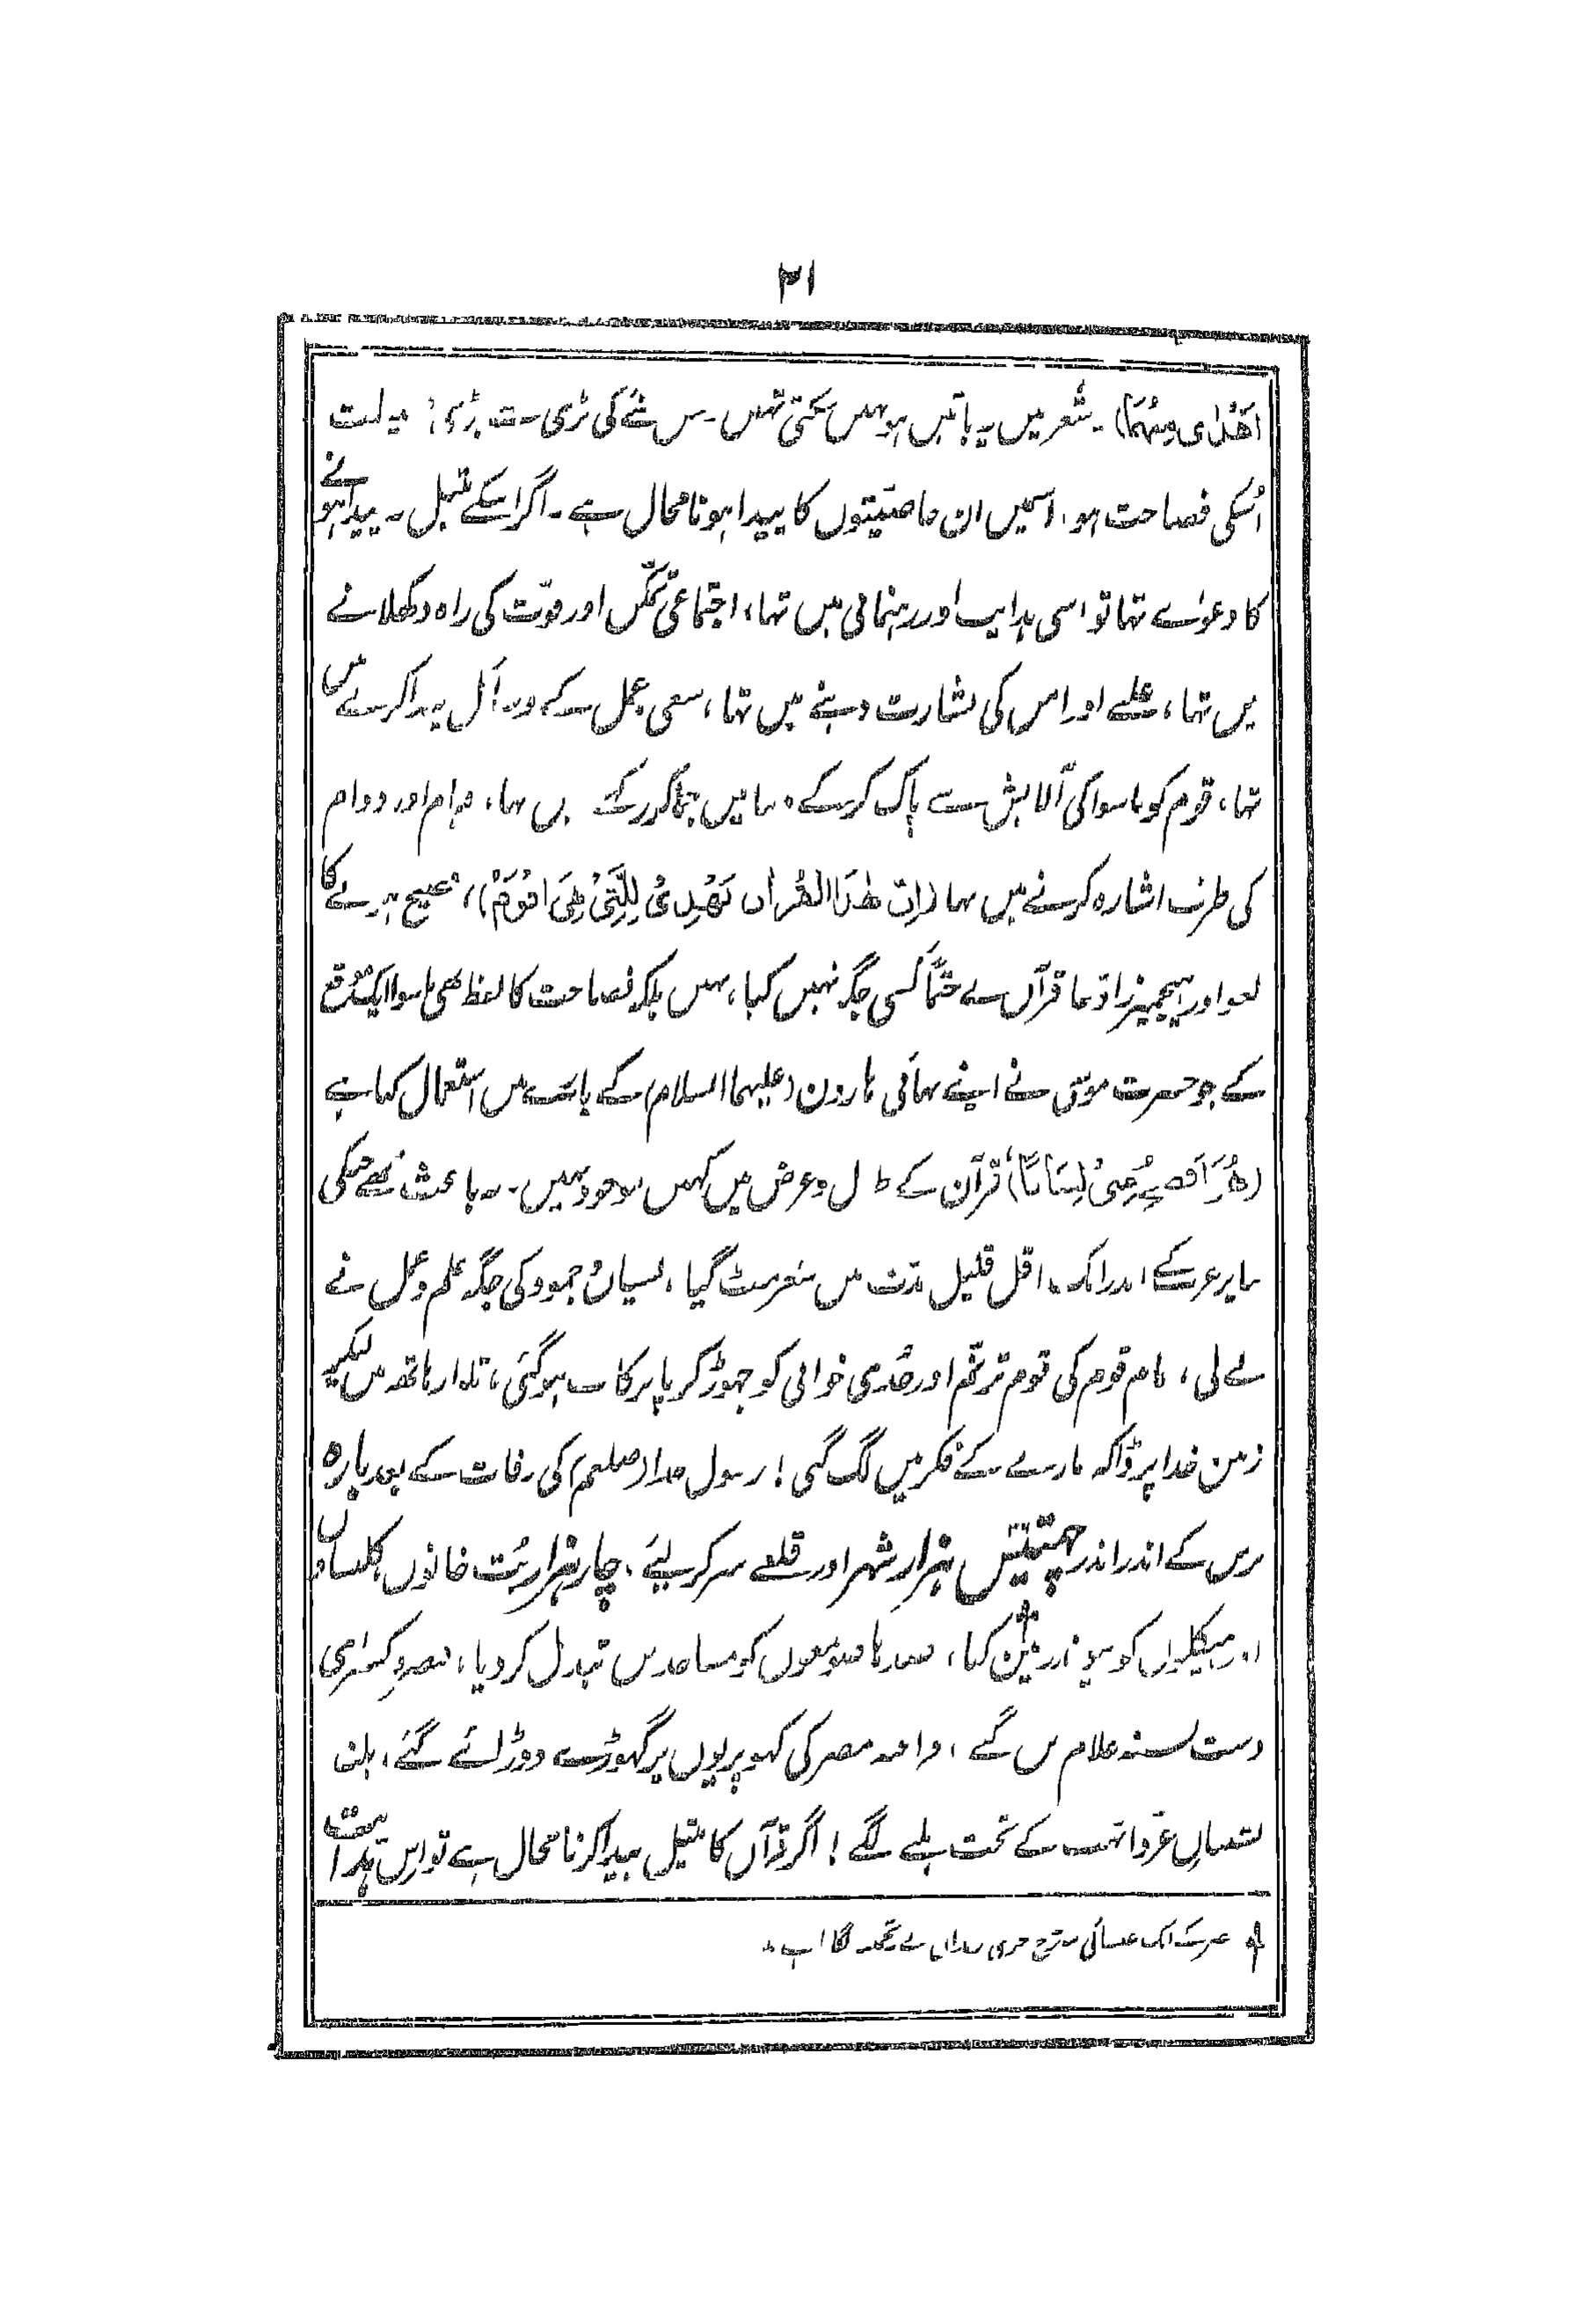 ۳۱
اَھْدٰی مِنْہُمَا) ۔ شعر میں یہ باتیں ہو نہیں سکتی تہیں۔ جس شے کی بڑی سے بڑی فضیلت
اُسکی فصاحت ہو، اسمیں ان خاصیتوں کا پیدا ہونا محال ہے ۔ اگر اسکے مثیل نہ پیدا ہونے
کا دعوٰے تہا تو اسی ہدایت اور رہنمائی میں تہا، اجتماعی تمکّن اور قوّت کی راہ دکھلانے
میں تہا، غلبے اور امن کی بشارت دینے میں تہا، سعی و عمل کے ولولے پیدا کرنے میں
تہا، قوم کو ماسوا کی آلایش سے پاک کرکے دنیا میں جماکر رکھنے میں تہا، قیام اور دوام
کی طرف اشارہ کرنے میں تہا (اِنَّ ھٰذَا الْقُرْاٰنَ یَھْدِیْ لِلَّتِیْ ھِیَ اَقْوَمُ)، فصیح ہونے کا
لغو اور ہیچمیرز ادّعا قرآن نے حتماً کسی جگہ نہیں کیا، نہیں بلکہ فصاحت کا لفظ بھی ماسوا ایک موقع
کے جو حضرت موسٰی نے اپنے بہائی ہارون (علیہما السلام) کے بابت میں استعمال کیا ہے
(ھُوَ اَفْصَحُ مِنِّیْ لِسَانًا) قرآن کے طول و عرض میں کہیں موجود نہیں۔ یہ باعث تھے جنکی
بنا پر عرب کے اندر ایک اقل قلیل مدّت میں شعر مٹ گیا، لسان جمود کی جگہ علم و عمل نے
لے لی، تمام قوم کی قوم ترنّم اور حُدی خوانی کو چہوڑ کر پا برکاب ہوگئی، تلوار ہاتھ میں لیکر
زمین خدا پر ڈاکہ مارنے کے فکر میں لگ گئی! رسول خدا (صلعم) کی وفات کے بعد بارہ
برس کے اندر اندر چھتیس ہزار شہر اور قلعے سر کر لیئے، چار ہزار بُت خانوں، کلیساؤں
اور ہیکلوں کو پیوند زمین کیا، صدہا صومعوں کو مساجد میں تبدیل کر دیا، قیصر و کسرٰی
دست بستہ غلام بن گئے، فراعنہ مصر کی کہوپریوں پر گھوڑے دوڑائے گئے، بلند
نشینانِ تخت کے تحت پلے گئے! اگر قرآن کا مثیل پیدا کرنا محال ہے تو اس ہدایت
عرب کے ایک عیسائی مورخ جرجی زیدان نے